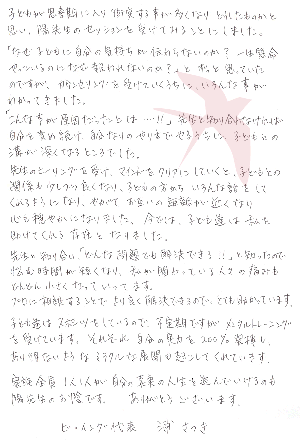 子どもが思春期に入り衝突する事が多くなり どうしたものかと
思い、陽先生のセッションを受けてみることにしました。
「なぜ子どもに自分の気持ちが伝わらないのか？
なのになぜ報われないのか？」と ずっと思っていた
のですが、カウンセリングを受けていくうちに、いろんな事が
わかってきました。
「こんな事が原因だったとは…!!」 先生と知り合わなければ
自分を責め続け、子どもとの
溝が深くなるところでした。
先生のヒーリングを受け、マインドをクリアにしていくと、子どもとの
関係も少しずつ良くなり、子どもの方から いろんな話をして
くれるようになり、やがて お互いの距離が近くなり
心も穏やかになりました。今では、子ども達は私を
助けてくれる存在となりました。
先生と知り合い「どんな問題でも解決できる!!」と知ったので
悩む時間が短くなり、私が関わっている人々の痛みも
どんどん小さくなっていってます。
相談することでより良く解決できるので、とても助かっています。
子ども達はスポーツをしているので、不定期ですがメンタルトレーニング
を受けています。それぞれ 自分の実力を200%発揮し、
あり得ないような ミラクルな展開も起こしてくれています。
家族全員 1人1人が自分の真実の人生を歩んでいけるのも
陽先生のお陰です。 ありがとうございます。
ヒーリング 代表 澤 さつき